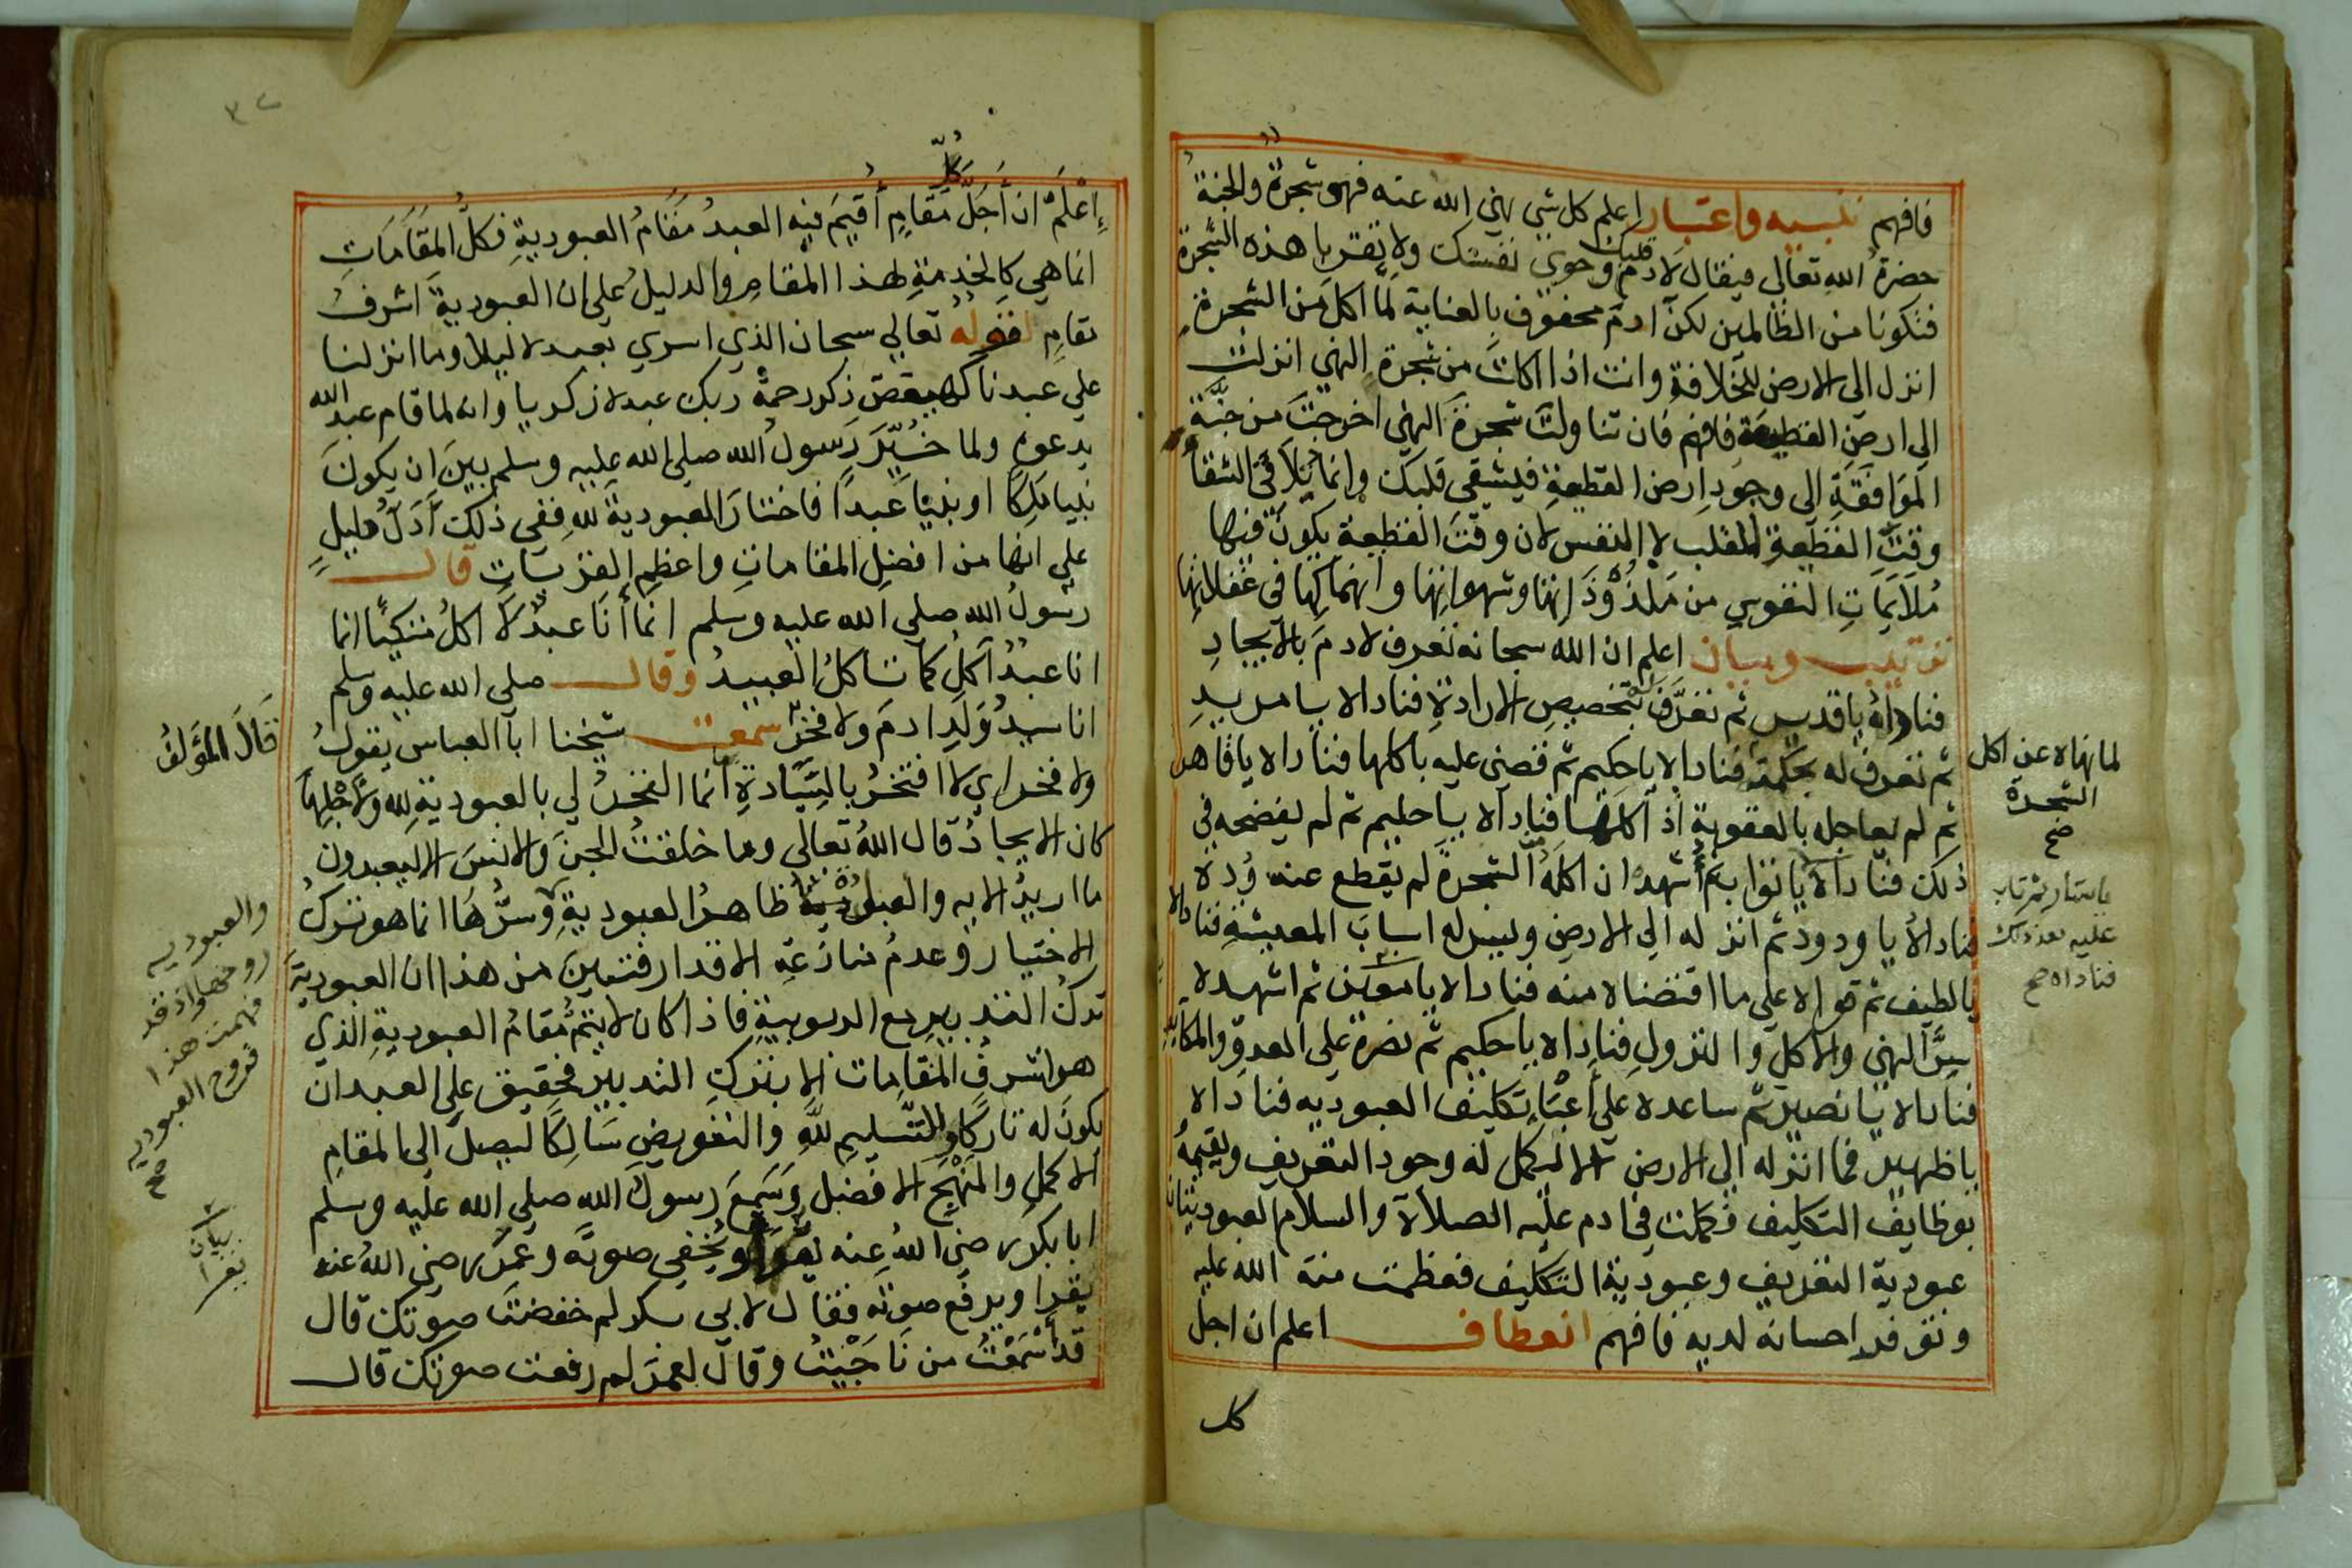 فافهم تنبيه واعتبار اعلم كل شي نهي الله عنه فهو شجرة والجنة
حضرة الله تعالى فيقال لادم قلبك وحوي نفسك ولا تقربا هذه الشجرة
فتكونا من الظالمين لكن ادم محفوف بالعناية لما اكل من الشجرة
انزل الى الارض للخلافة وانت اذا اكلت من شجرة النهي انزلت
الى ارض القطيعة فافهم فان تناولت شجرة النهي اخرجت من جنة
الموافقة الى وجود ارض القطيعة فيشقي قلبك وانما يلاقى الشقا
وقت القطيعة القلب لا النفس لان وقت القطيعة يكون فيها
ملايمات النفوس من ملذوذاتها وشهواتها وانهماكها في غفلاتها
ترتيب وبيان اعلم ان الله سبحانه تعرف لادم بالايجاد
فناداه ياقدير ثم تعرف بتخصيص الارادة فناداه يا مريد
ثم تعرف له بحكمته فناداه ياحكيم ثم قضى عليه باكلها فناداه ياقاهر
ثم لم يعاجله بالعقوبة اذ اكلها فناداه ياحليم ثم لم يفضحه في
ذلك فناداه ياتواب ثم أشهده ان اكله الشجرة لم يقطع عنه وده
فناداه يا ودود ثم انزله الى الارض ويسر له اسباب المعيشة فناداه
يالطيف ثم قواه على ما اقتضاه منه فناداه يامعين ثم اشهده
سر النهي والاكل والنزول فناداه ياحكيم ثم نصره على العدو والمكايد
فناداه يا نصير ثم ساعده على أعباء تكليف العبوديه فناداه
ياظهير فما انزله الى الارض الا ليكمل له وجود التعريف ويقيمه
بوظايف التكليف فكملت في ادم عليه الصلاة والسلام العبوديتان
عبودية التعريف وعبودية التكليف فعظمت منة الله عليه
وتوفر احسانه لديه فافهم انعطاف اعلم ان اجل
كل
لما نهاه عن اكل
الشجرة
صح
عليه بعد ذلك
فناداه صح
كل
إعلم ان أجل مقام أقيم فيه العبد مقام العبودية فكل المقامات
انما هي كالخدمة لهذا المقام والدليل على ان العبودية اشرف
مقام قوله تعالى سبحان الذي اسرى بعبده ليلا وما انزلنا
على عبدنا كهيعص ذكر رحمة ربك عبده زكريا وانه لما قام عبد الله
يدعوه ولما خير رسول الله صلى الله عليه وسلم بين ان يكون
نبيا ملكا او نبيا عبدا فاختار العبودية لله ففي ذلك أدل دليل
على انها من افضل المقامات واعظم القربات قال
رسول الله صلى الله عليه وسلم انما أنا عبد لا اكل متكيا انما
انا عبد آكل كما تاكل العبيد وقال صلى الله عليه وسلم
انا سيد ولد ادم ولا فخر سمعت شيخنا ابا العباس يقول
ولا فخر اي لا افتخر بالسيادة انما الفخر لي بالعبودية لله ولاجلها
كان الايجاد قال الله تعالى وما خلقت الجن والانس الا ليعبدون
ما اريد الايه والعبادة ظاهر العبودية وسرها انما هو ترك
الاختيار وعدم منازعة الاقدار فتبين من هذا ان العبودية
ترك التدبير مع الربوبية فاذا كان لا يتم مقام العبودية الذي
هو اشرف المقامات الا بترك التدبير فحقيق على العبد ان
يكون له تاركا وللتسليم لله والتفويض سالكا ليصل الى المقام
الاكمل والمنهج الافضل وسمع رسول الله صلى الله عليه وسلم
ابا بكر رضي الله عنه يقرا ويخفي صوته وعمر رضي الله عنه
يقرا ويرفع صوته فقال لابي بكر لم خفضت صوتك قال
قد أسمعت من ناجيت وقال لعمر لم رفعت صوتك قال
قال المؤلف
والعبوديه
روحها واذ قد
فهمت هذا
فروح العبوديه
صح
بيان
يقرا